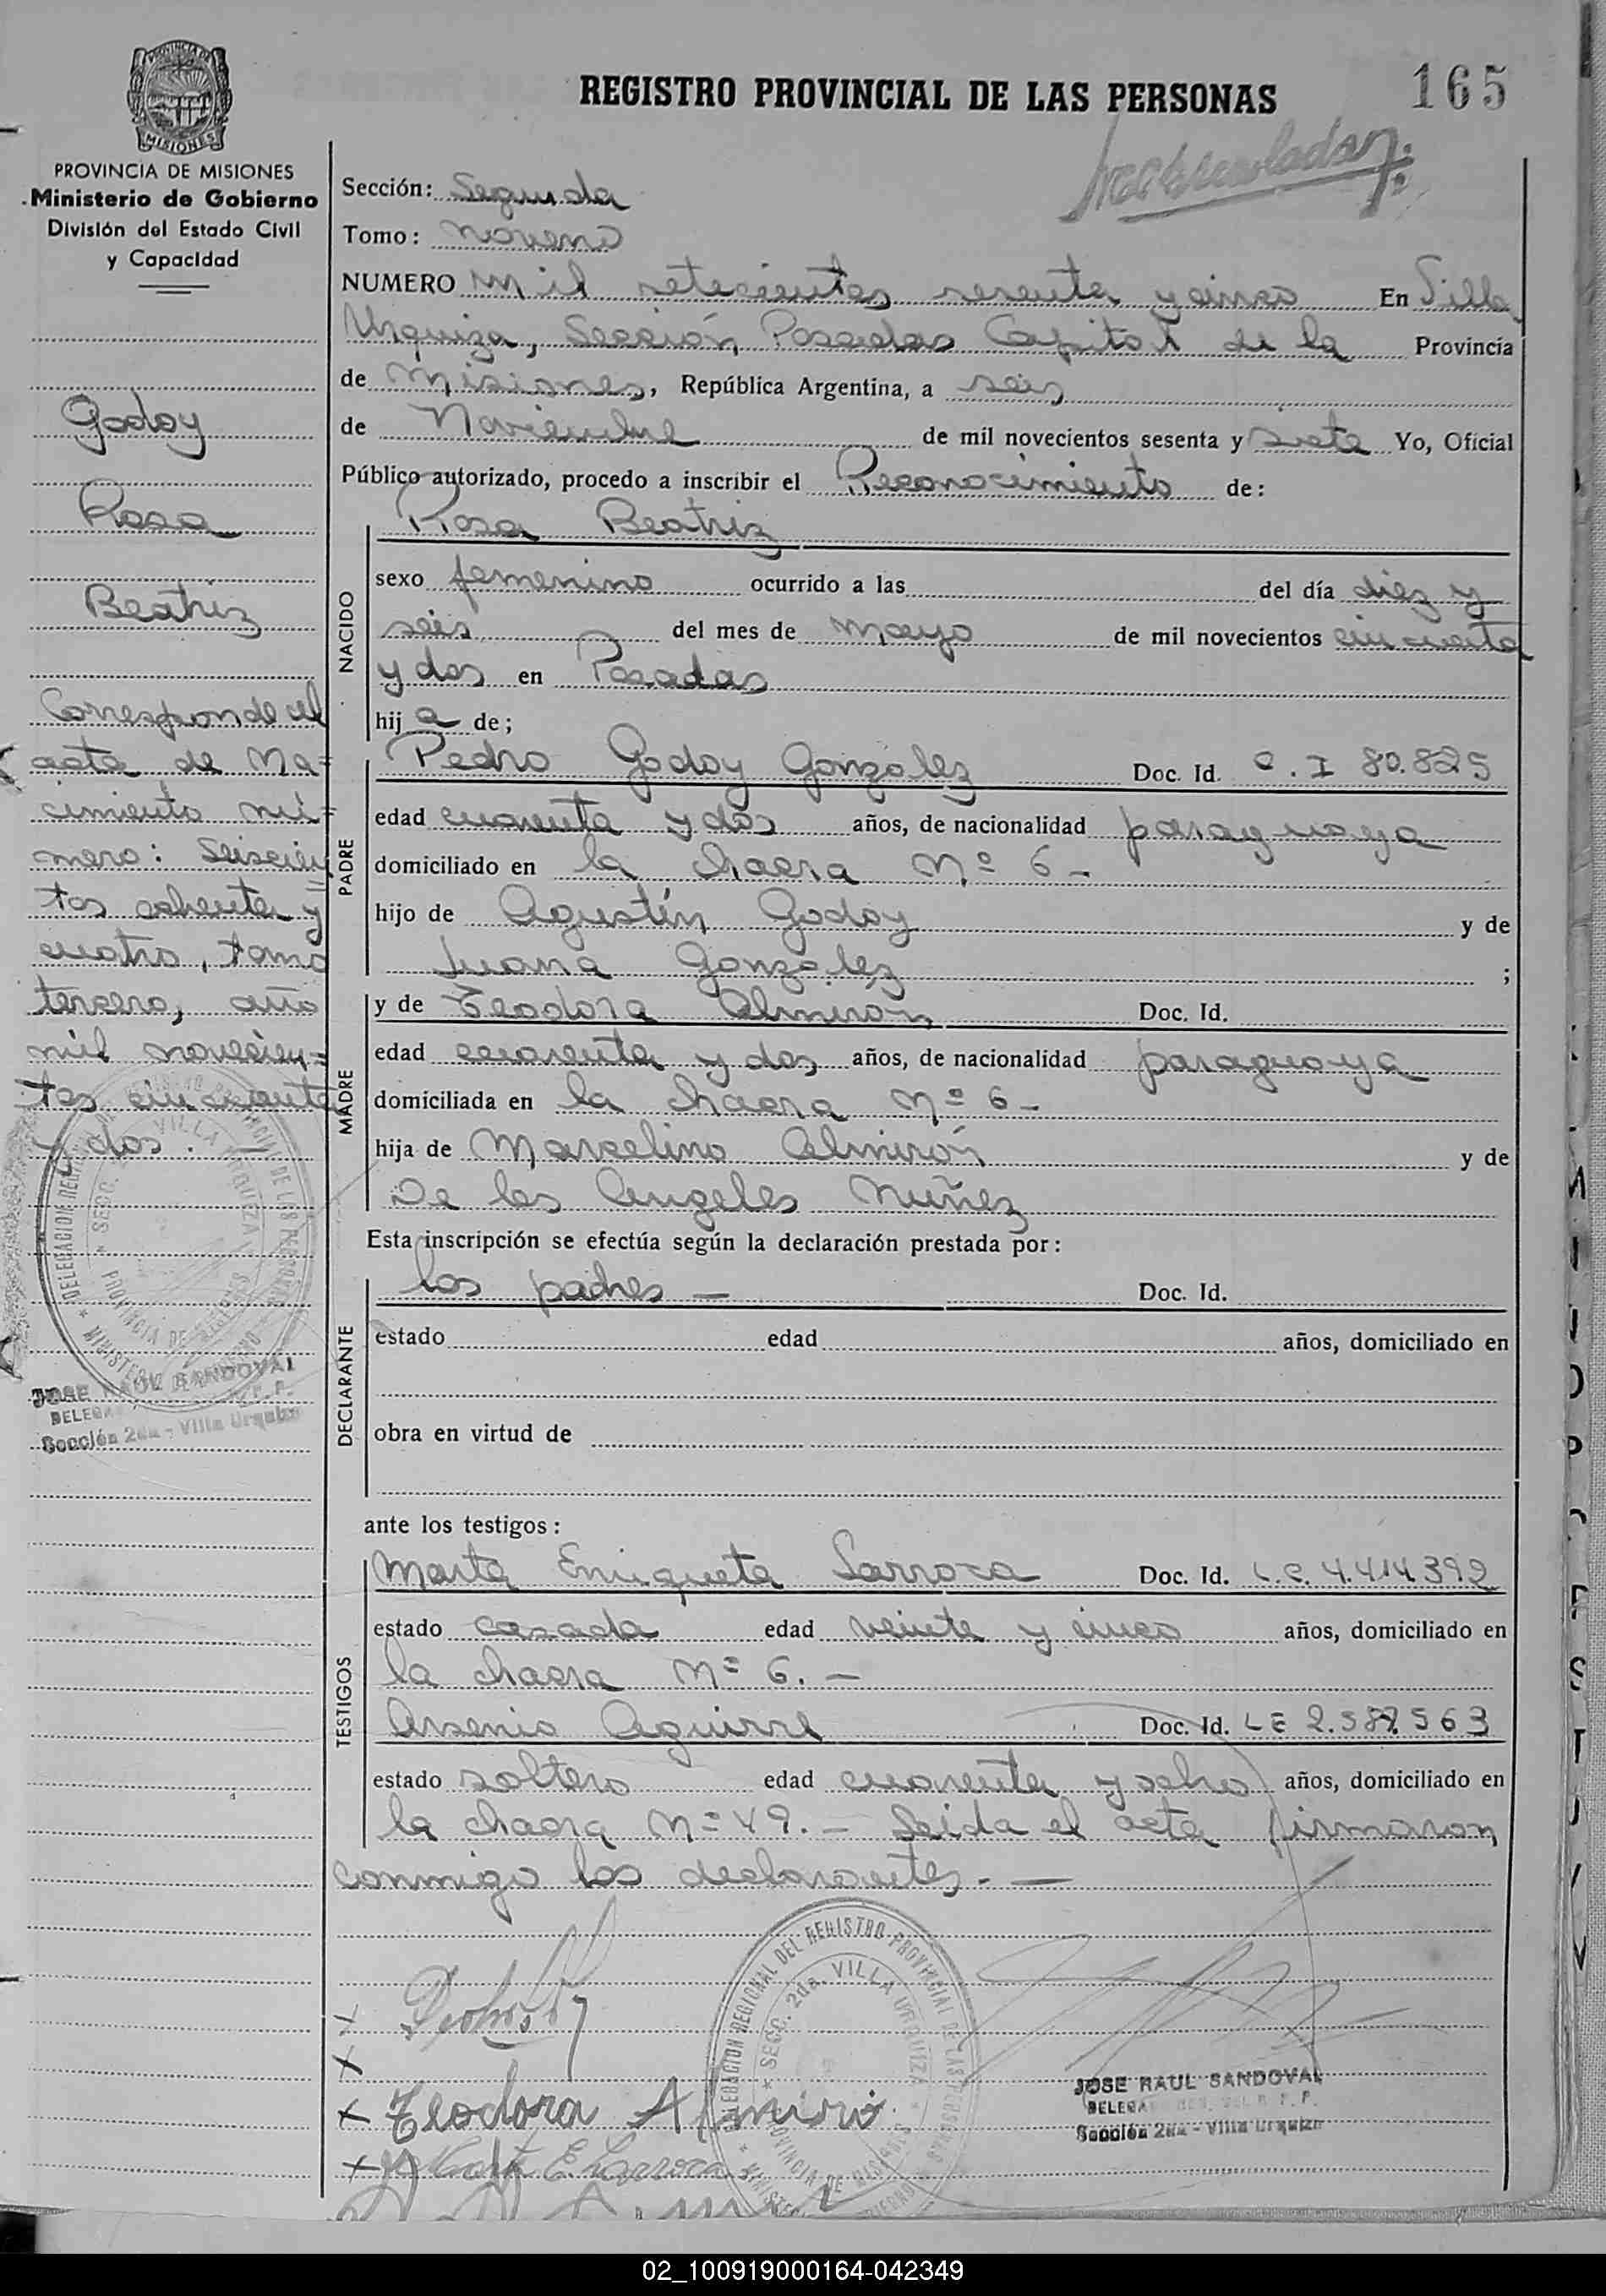 REGISTRO PROVINCIAL DE LAS PERSONAS
165
MISIONES
PROVINCIA DE MISIONES
Ministerio de Gobierno
División del Estado Civil
y Capacidad
Godoy
Rosa
Beatriz
Corresponde al
acta de Na=
cimiento nú=
mero: Seiscien
tos ochenta y
cuatro, tomo
tercero, año
mil novecien=
tos cincuenta
y dos. -
JOSE RAUL SANDOVAL
Sección 2da - Villa Urquiza
Sección: Segunda
Tomo: Noveno
NUMERO mil setecientos sesenta y cinco En Villa
Urquiza, Sección Posadas Capital de la Provincia
de Misiones, República Argentina, a seis
de Noviembre de mil novecientos sesenta y siete Yo, Oficial
Público autorizado, procedo a inscribir el Reconocimiento de:
NACIDO
Rosa Beatriz
sexo femenino ocurrido a las del día diez y
seis del mes de mayo de mil novecientos cincuenta
y dos en Posadas
hij a de;
PADRE
Pedro Godoy González Doc. Id. C. I 80.825
edad cuarenta y dos años, de nacionalidad paraguaya
domiciliado en la chacra Nº 6 -
hijo de Agustín Godoy y de
Juana González ;
MADRE
y de Teodora Almirón Doc. Id.
edad cuarenta y dos años, de nacionalidad paraguaya
domiciliada en la chacra Nº 6 -
hija de Marcelino Almirón y de
De los Angeles Nuñez
Esta inscripción se efectúa según la declaración prestada por:
DECLARANTE
los padres - Doc. Id.
estado edad años, domiciliado en
obra en virtud de
ante los testigos:
TESTIGOS
Marta Enriqueta Larroca Doc. Id. L.C. 4.414.392
estado casada edad veinte y cinco años, domiciliado en
la chacra Nº 6. -
Arsenio Aguirre Doc. Id. LE 2.587.563
estado soltero edad cuarenta y ocho años, domiciliado en
la chacra Nº 49. - Leida el acta firmaron
conmigo los declarantes. -
DELEGACION REGIONAL DEL REGISTRO PROVINCIAL DE LAS PERSONAS
SECC. 2da. VILLA URQUIZA
PROVINCIA DE MISIONES
X
X
X Teodora Almirón
X Marta E. Larroca
JOSE RAUL SANDOVAL
Sección 2da - Villa Urquiza
02_100919000164-042349